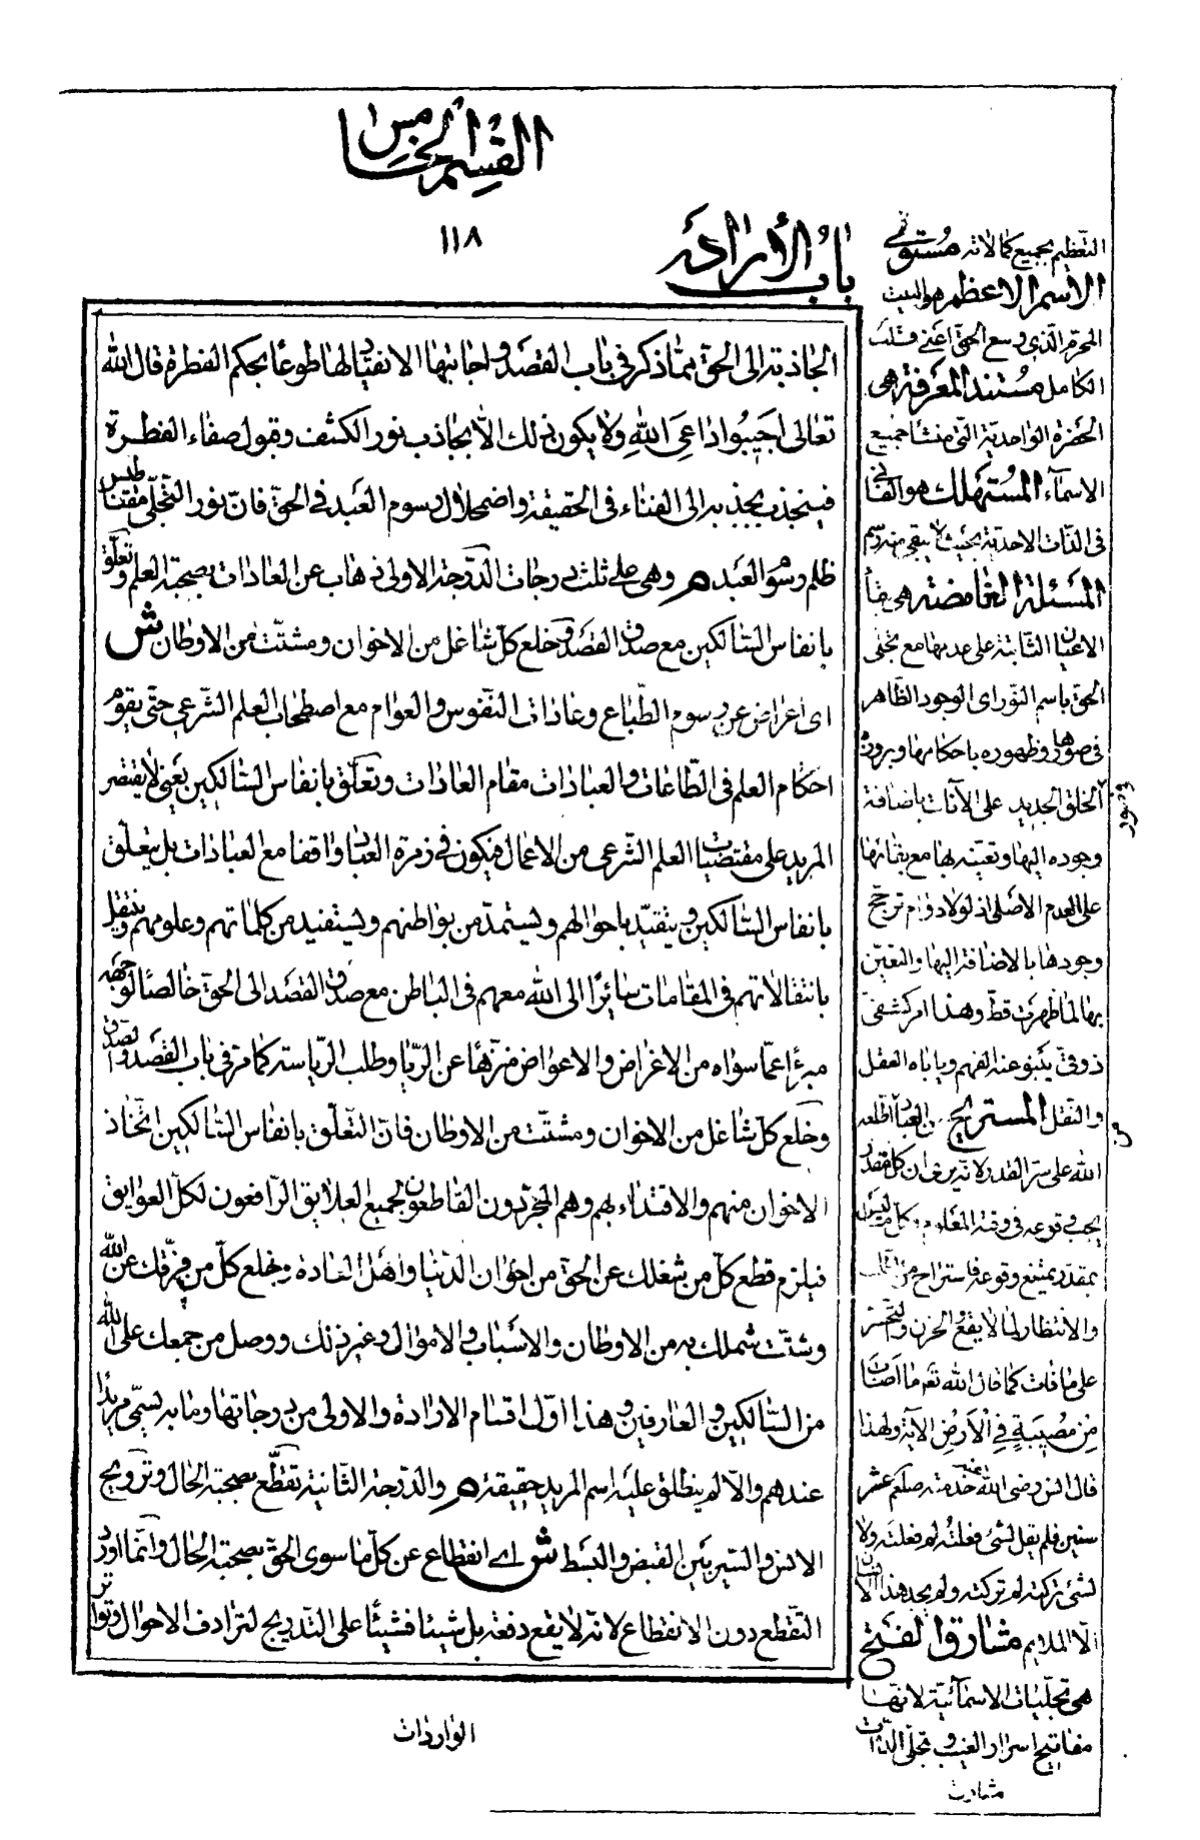 القسم الخامس
١١٨
باب الأرادة
الجاذبة الى الحق مما ذكر فى باب القصد واجابتها الانقياد لها طوعا بحكم الفطرة قال الله
تعالى اجيبوا داعى الله ولا يكون ذلك الا بجاذب نور الكشف وقبول صفاء الفطرة
فينجذب بجذبه الى الفناء فى الحقيقة واضمحلال رسوم العبد فى الحق فان نور التجلى مقتضاه طمس
ظلم رسوم العبد م وهى على ثلث درجات الدرجة الاولى ذهاب عن العادات بصحبة العلم وتعلق
بانفاس السالكين مع صدق القصد وخلع كل شاغل من الاخوان ومشتت من الاوطان ش
اى اعراض عن رسوم الطباع وعادات النفوس والعوام مع اصطحاب العلم الشرعى حتى يقوم
احكام العلم فى الطاعات والعبادات مقام العادات وتعلق بانفاس السالكين يعنى لا يقتصر
المريد على مقتضيات العلم الشرعى من الاعمال فيكون فى زمرة العباد واقفا مع العبادات بل يتعلق
بانفاس السالكين ويتقيد باحوالهم ويستمد من بواطنهم ويستفيد من كلماتهم وعلومهم وينتقل
بانتقالاتهم فى المقامات سائرا الى الله معهم فى الباطن مع صدق القصد الى الحق خالصا لوجهه
مبرءا عما سواه من الاغراض والاعواض منزها عن الريا وطلب الرياسة كما مر فى باب القصد والصدق
وخلع كل شاغل من الاخوان ومشتت من الاوطان فان التعلق بانفاس السالكين اتخاذ
الاخوان منهم والاقتداء بهم وهم المجردون القاطعون لجميع العلايق الرافعون لكل العوايق
فيلزم قطع كل من شغلك عن الحق من اخوان الدنيا واهل العادة وخلع كل من فرقك عن الله
وشتت شملك به من الاوطان والاسباب والاموال وغير ذلك ووصل من جمعك على الله
من السالكين والعارفين وهذا اول اقسام الارادة والاولى من درجاتها وما به يسمى مريدا
عندهم والا لم ينطلق عليه اسم المريد حقيقة م والدرجة الثانية تقطع بصحبة الحال وترويح
الانس والسير بين القبض والبسط ش اى انقطاع عن كل ما سوى الحق بصحبة الحال وانما اورد
التقطع دون الانقطاع لانه لا يقع دفعة بل شيئا فشيئا على التدريج لترادف الاحوال وتواتر
الواردات
التعظيم بجميع كمالاته مستوى
الاسم الاعظم هو البيت
المحرم الذى وسع الحق اعنى قلب
الكامل مستند المعرفة هى
الحضرة الواحدية التى منشا جميع
الاسماء المستهلك هو الفانى
فى الذات الاحدية بحيث لا يبقى منه رسم
المسئلة الغامضة هى بقأ
الاعيان الثابتة على عدمها مع تجلى
الحق باسم النور اى الوجود الظاهر
فى صورها وظهوره باحكامها وبروزه فى صور
الخلق الجديد على الآنات باضافة
وجوده اليها وتعينه بها مع بقائها
على العدم الاصلى اذ لولا دوام ترجح
وجودها بالاضافة اليها والتعين
بها لما ظهرت قط وهذا امر كشفى
ذوقى ينبو عنه الفهم وياباه العقل
والنقل المستريح من العباد من اطلعه
الله على سر القدر لانه يرى ان كل مقدر
يجب وقوعه فى وقته المعلوم وكل ما ليس
بمقدر يمتنع وقوعه فاستراح من الطلب
والانتظار لما لا يقع والحزن والتحسر
على ما فات كما قال الله تعـ ما اصاب
من مصيبة فى الارض الاية ولهذا
قال انس رضى الله عنه خدمته صلعم عشر
سنين فلم يقل لشئ فعلته لم فعلته ولا
لشئ تركته لم تركته ولم يجد هذا الانسان
الا الملايم مشارق الفتح
هى تجليات الاسمائية لانها
مفاتيح اسرار الغيب وتجلى الذات
مشارق